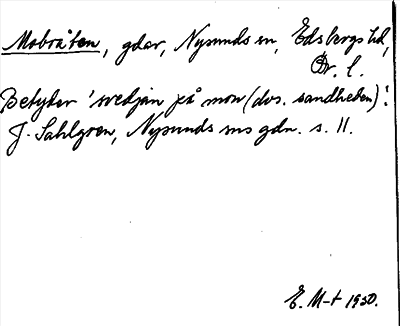 Mobråten, gdar, Nysunds sn, Edsbergs hd,
Ör. l.
Betyder 'svedjan på mon (dvs. sandheden)'.
J. Sahlgren, Nysunds sns gdn. s. 11.
E. M-t 1930.